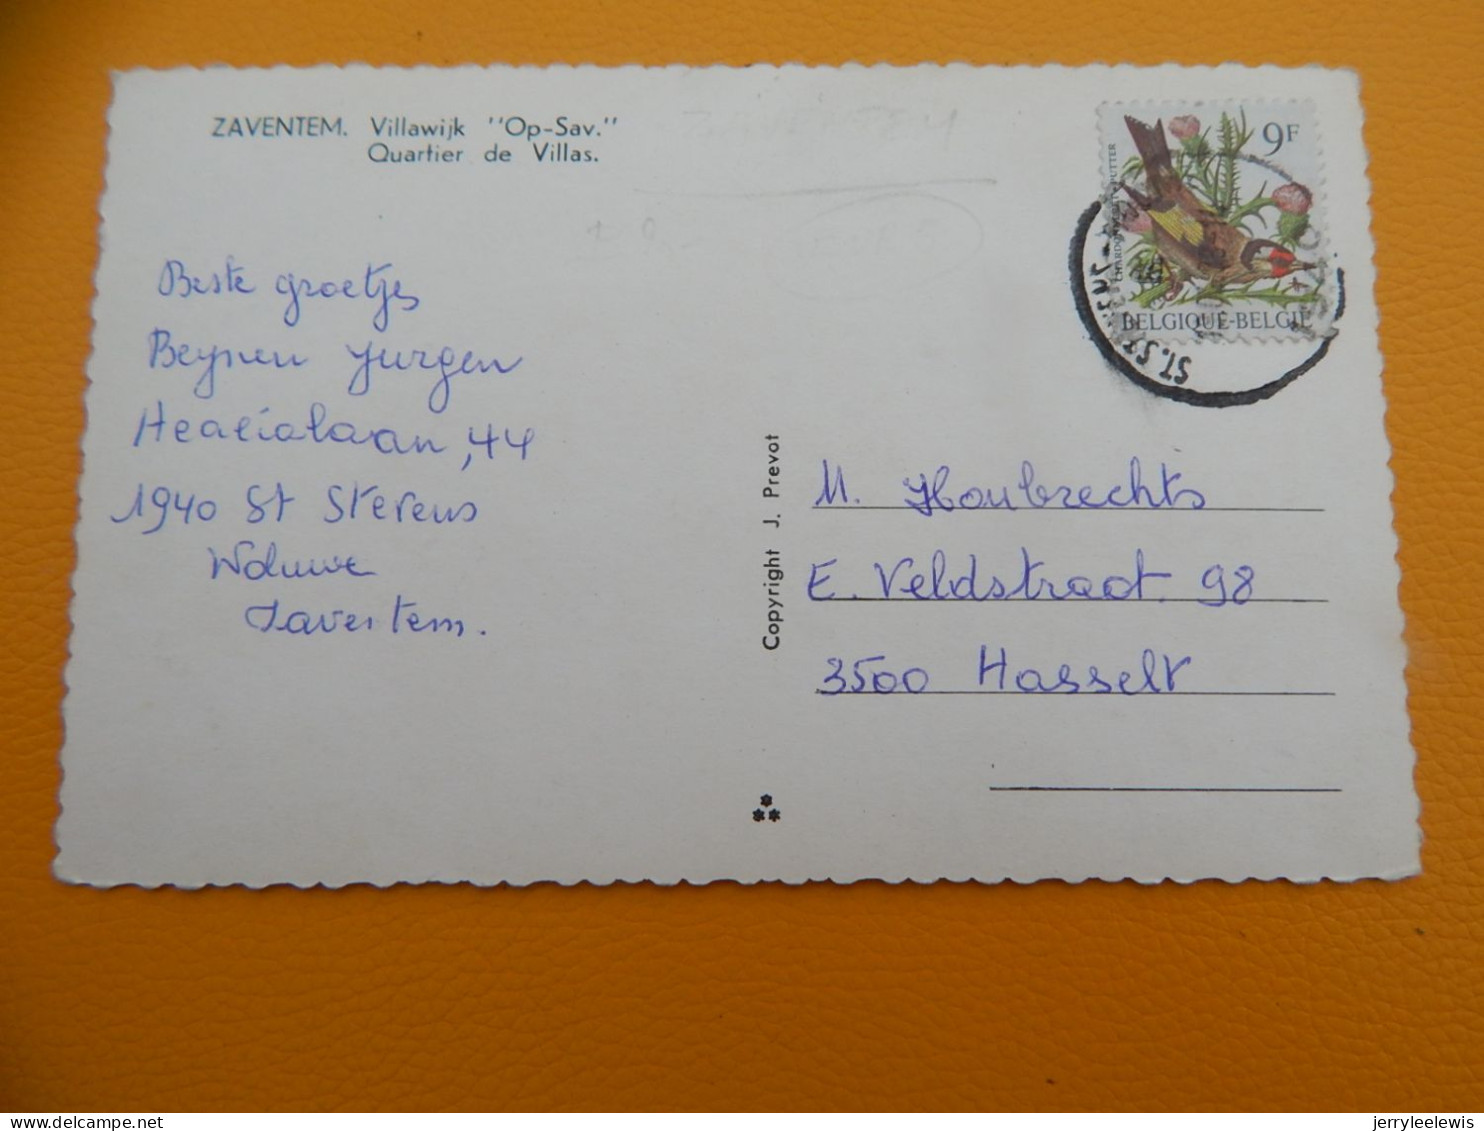 ZAVENTEM. Villawijk "Op-Sav."
Quartier de Villas.
9F
BELGIQUE-BELGIË
1940
Beste groetjes
Beynen Jurgen
Acacialaan, 44
1940 St Stevens
Woluwe
Zaventem.
Copyright J. Prevot
M. Houbrechts
E. Veldstraat 98
3500 Hasselt
jerryleelewis